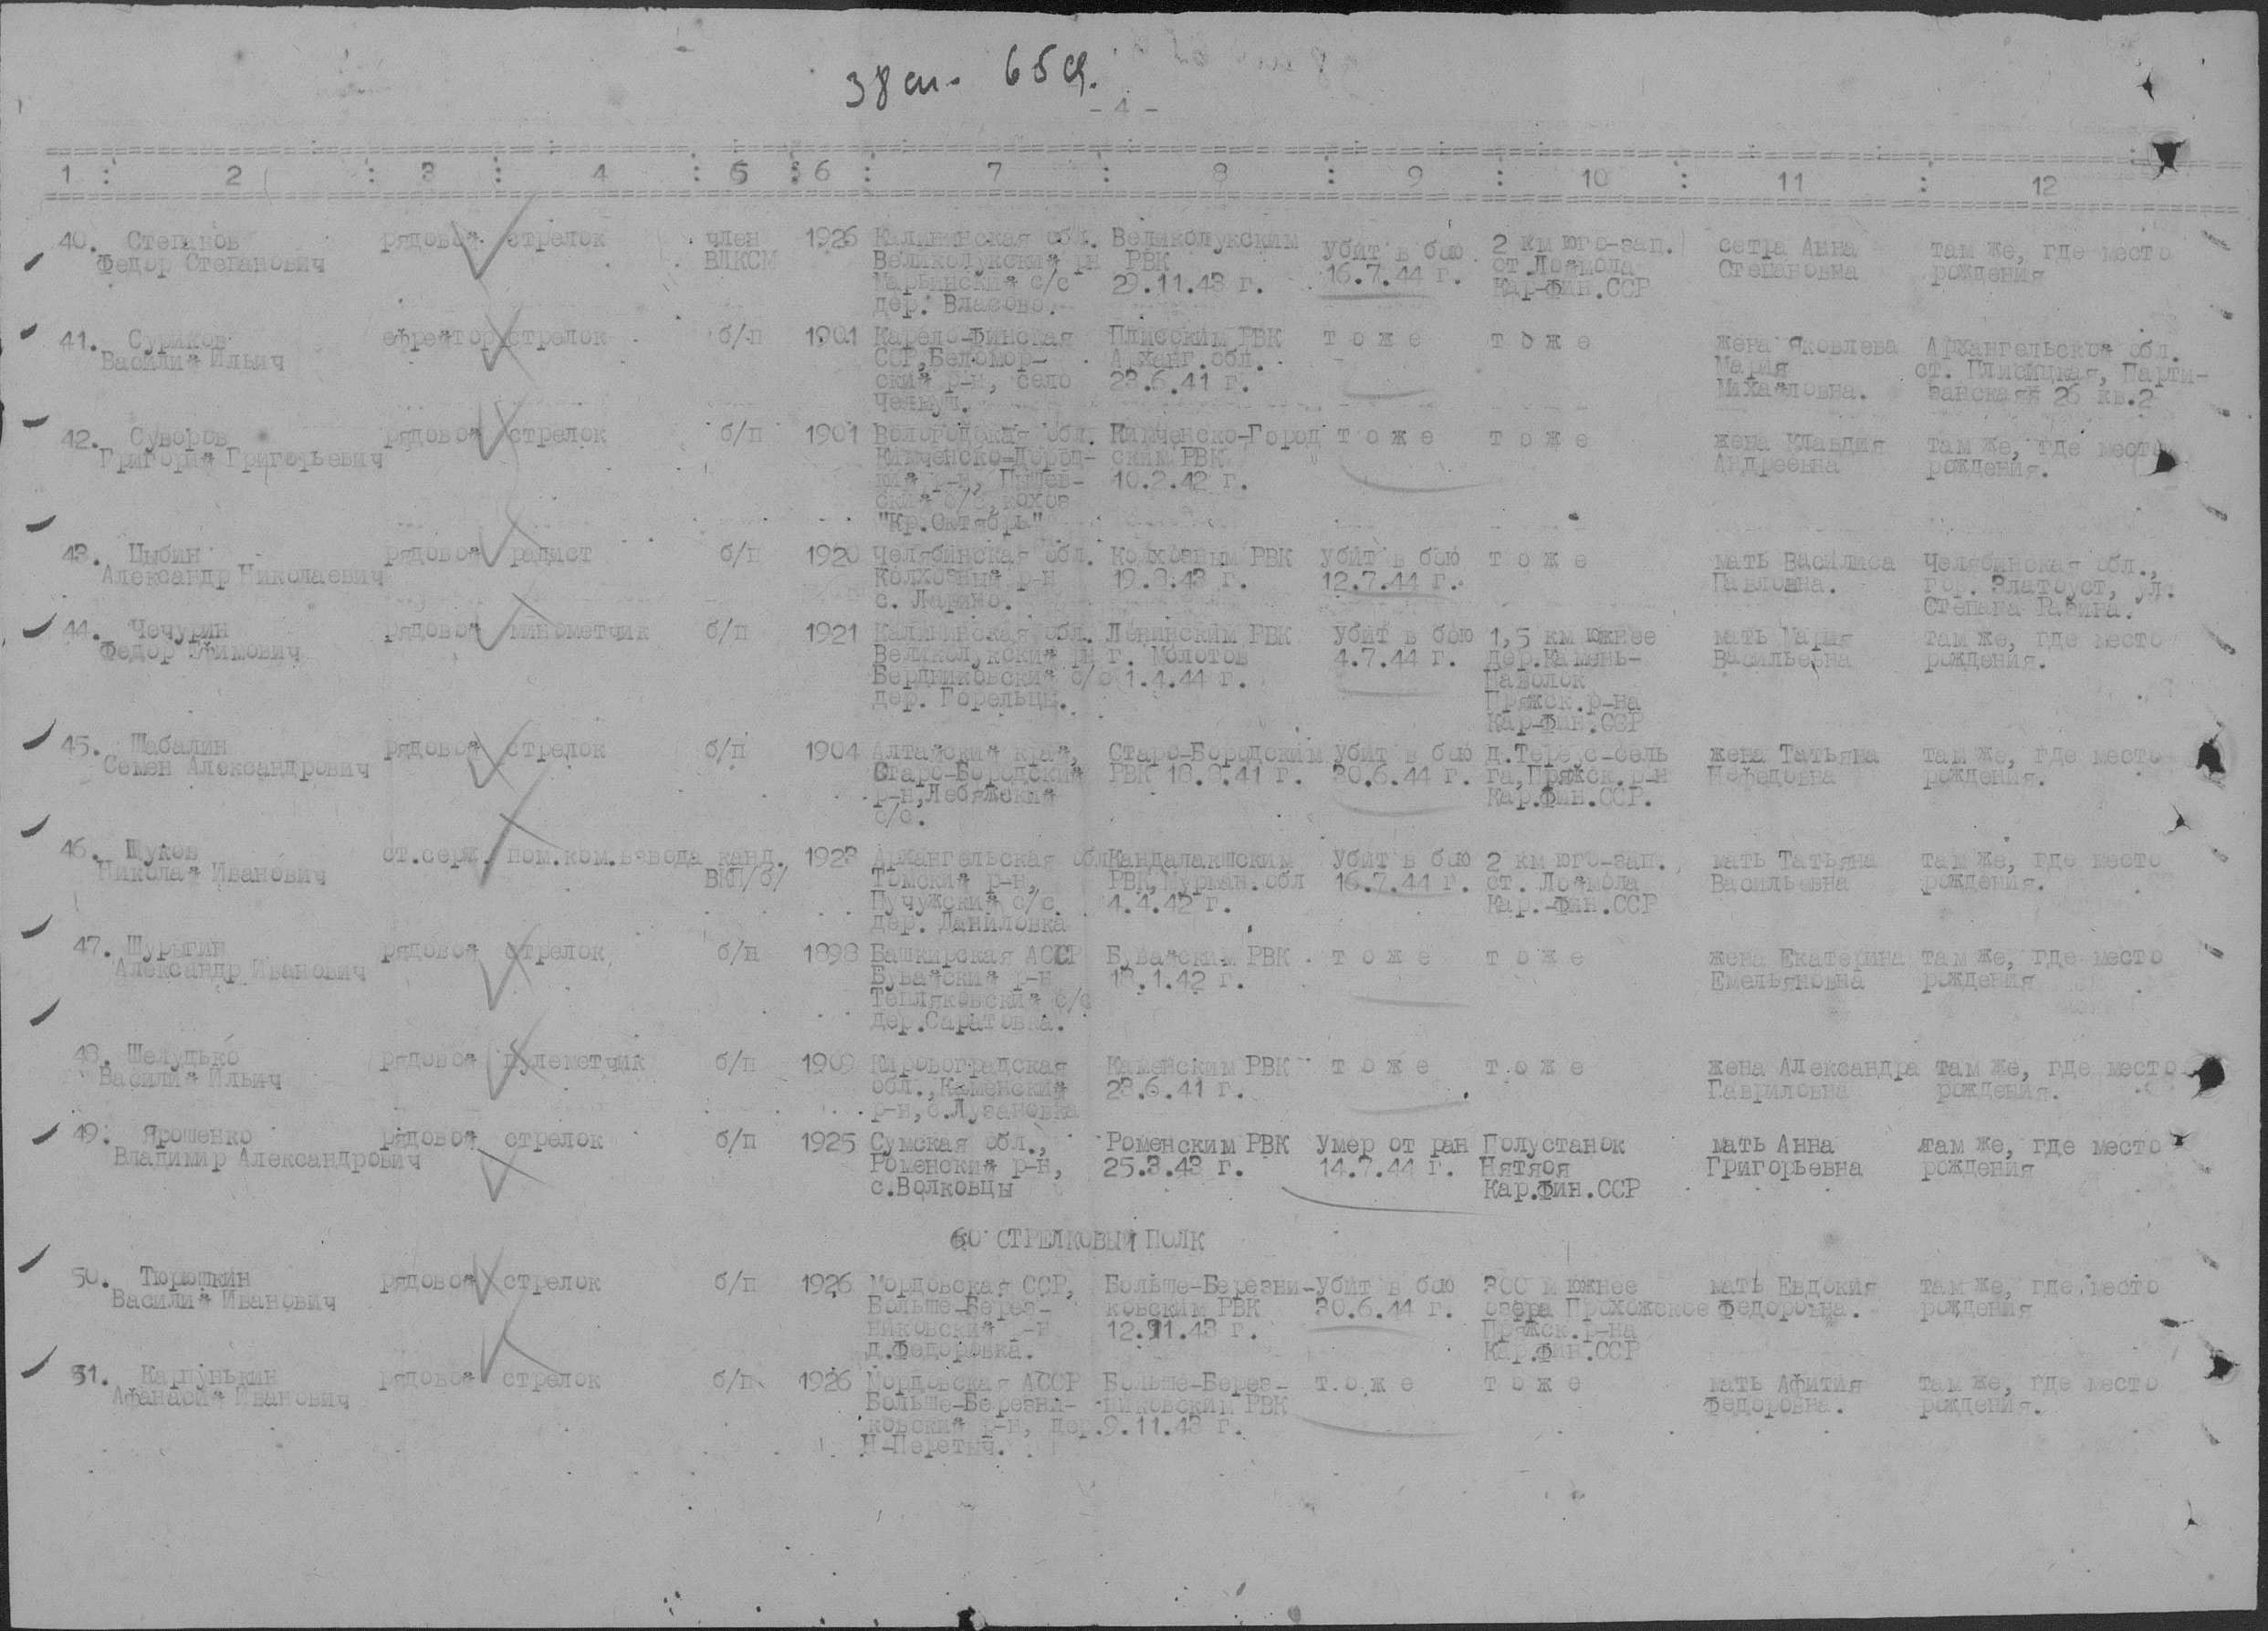 38 сп. 65 сд.
- 4 -
1 : 2 : 3 : 4 : 5 : 6 : 7 : 8 : 9 : 10 : 11 : 12
40. Степанов рядовой стрелок член 1926 Калининская обл. Великолукским убит в бою 2 км юго-зап. сетра Анна там же, где место
Федор Степанович ВЛКСМ Великолукский рн РВК 16.7.44 г. ст.Лоймола Степановна рождения
Марьинский с/с 29.11.43 г. Кар-Фин.ССР
дер. Власово.
41. Суриков ефрейтор стрелок б/п 1901 Карело-Финская Плисским РВК т о ж е т о ж е жена Яковлева Архангельской обл.
Василий Ильич ССР, Беломор- Арханг.обл. Мария ст. Плисицкая, Парти-
ский р-н, село 23.6.41 г. Михайловна. занская 26 кв.2
42. Суворов рядовой стрелок б/п 1901 Вологодская обл. Кимченско-Город т о ж е т о ж е жена Клавдия там же, где место
Григорий Григорьевич Кимченско-Город- ским РВК Андреевна рождения.
кий р-н, 10.2.42 г.
ский с/с, кохоз
"Кр.Октябрь"
43. Цыбин рядовой радист б/п 1920 Челябинская обл. Колхозным РВК убит в бою т о ж е мать Василиса Челябинская обл.,
Александр Николаевич Колхозный р-н 19.8.43 г. 12.7.44 г. Павловна. гор. Златоуст, ул.
с. Ларино. Степана Разина.
44. Чечурин рядовой минометчик б/п 1921 Калининская обл. Ленинским РВК убит в бою 1,5 км южнее мать Мария там же, где место
Федор Ефимович Великолукский рн г. Молотов 4.7.44 г. дер.Камень- Васильевна рождения.
Бердниковский с/с 1.4.44 г. Наволок
дер. Горельцы. Пряжск.р-на
Кар-Фин.ССР
45. Шабалин рядовой стрелок б/п 1904 Алтайский край, Старо-Бородским убит в бою д.Терекс-сель жена Татьяна там же, где место
Семен Александрович Старо-Бородский РВК 18.8.41 г. 30.6.44 г. га, Пряжск.р-н Нефедовна рождения.
р-н, Лебяжский Кар.Фин.ССР.
с/с.
46. Щуков ст.серж. пом.ком.взвода канд. 1923 Архангельская обл Кандалакшским убит в бою 2 км юго-зап. мать Татьяна там же, где место
Николай Иванович ВКП/б/ Томский р-н, РВК, Мурман.обл 16.7.44 г. ст. Лоймола Васильевна рождения.
Пучужский с/с 4.4.42 г. Кар.-Фин.ССР
дер. Даниловка
47. Шурыгин рядовой стрелок б/п 1898 Башкирская АССР Бувайским РВК т о ж е т о ж е жена Екатерина там же, где место
Александр Иванович Бувайский р-н 18.1.42 г. Емельяновна рождения
Тепляковский с/с
дер.Саратовка.
48. Шелудько рядовой пулеметчик б/п 1909 Кировоградская Каменским РВК т о ж е т о ж е жена Александра там же, где место
Василий Ильич обл., Каменский 23.6.41 г. Гавриловна рождения.
р-н, с.Лузановка
49. Ярошенко рядовой стрелок б/п 1925 Сумская обл., Роменским РВК Умер от ран Полустанок мать Анна там же, где место
Владимир Александрович Роменский р-н, 25.3.43 г. 14.7.44 г. Нятяоя Григорьевна рождения
с.Волковцы Кар.Фин.ССР
60 СТРЕЛКОВЫЙ ПОЛК
50. Тюрюшкин рядовой стрелок б/п 1926 Мордовская ССР, Больше-Березни- убит в бою 300 м южнее мать Евдокия там же, где место
Василий Иванович Больше-Берез- ковским РВК 30.6.44 г. озера Прохожское Федоровна. рождения
никовский р-н 12.11.43 г. Пряжск.р-на
д.Федоровка. Кар.Фин.ССР
51. Карпунькин рядовой стрелок б/п 1926 Мордовская АССР Больше-Берез- т о ж е т о ж е мать Афития там же, где место
Афанасий Иванович Больше-Березни- никовским РВК Федоровна. рождения.
ковский р-н, дер. 9.11.43 г.